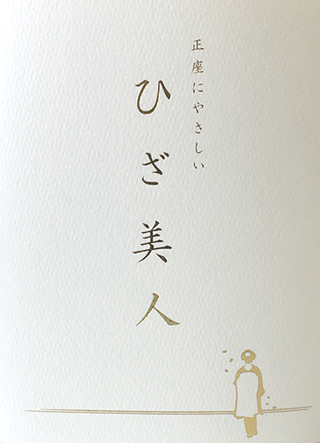 正座にやさしい
ひざ美人